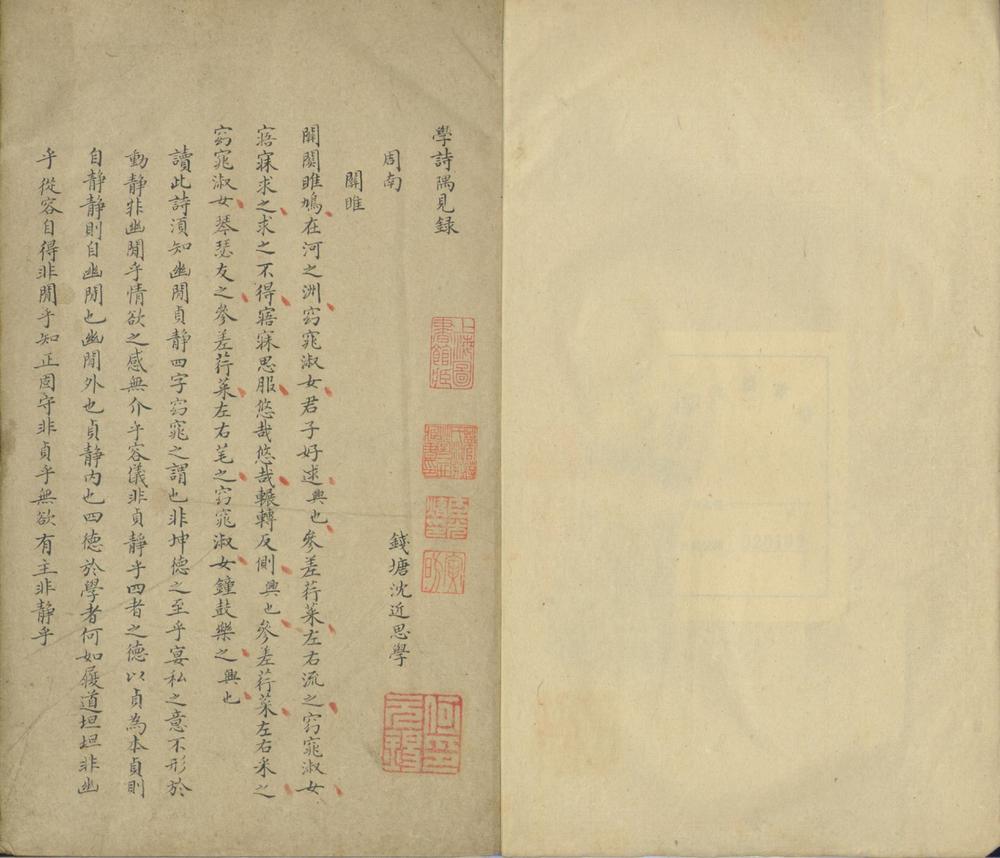 學詩隅見録
錢塘沈近思學
周南
關雎
關關雎鳩在河之洲窈窕淑女君子好逑興也參差荇菜左右流之窈窕淑女
寤寐求之求之不得寤寐思服悠哉悠哉輾轉反側興也參差荇菜左右采之
窈窕淑女琴瑟友之參差荇菜左右芼之窈窕淑女鐘鼓樂之興也
讀此詩須知幽閒貞静四字窈窕之謂也非坤德之至乎宴私之意不形於
動静非幽閒乎情欲之感無介乎容儀非貞静乎四者之德以貞為本貞則
自静静則自幽閒也幽閒外也貞静内也四德於學者何如履道坦坦非幽
乎從容自得非閒乎知正固守非貞乎無欲有主非静乎
上海圖書館藏